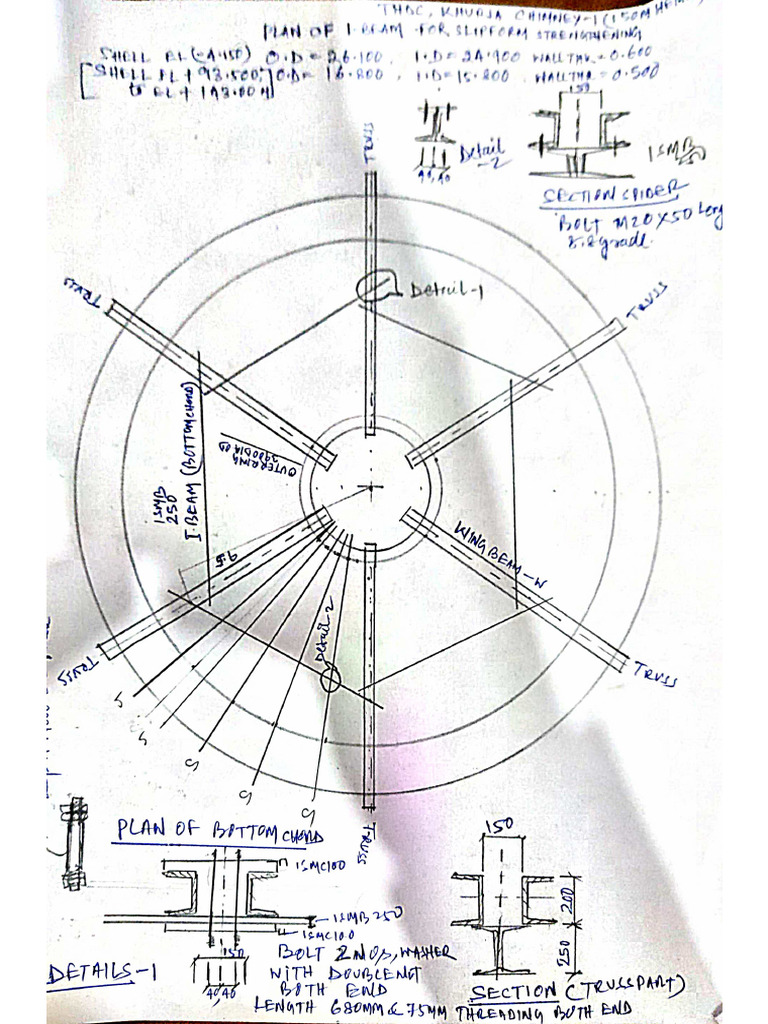 THDC, KHURJA CHIMNEY-1 (150M HEIGHT)
PLAN OF I-BEAM FOR SLIPFORM STRENGTHENING
SHELL EL (-4.150) O.D = 26.100, I.D = 24.900 WALL THK = 0.600
[SHELL EL + 93.500 O.D = 16.800, I.D = 15.800, WALL THK = 0.500
to EL +
150
Detail
-2
40 40
ISMB
250
SECTION SPIDER
BOLT M20X50 Leng
8.8 grade.
TRUSS
Detail-1
TRUSS
TRUSS
ISMB
250
I-BEAM (BOTTOM CHORD)
OUTER RING
3900 DIA OD
WING BEAM-W
Detail-2
TRUSS
TRUSS
S
S
S
S
S
TRUSS
PLAN OF BOTTOM CHORD
ISMC100
ISMB 250
ISMC100
150
40 40
DETAILS-1
BOLT 2 NOS, WASHER
WITH DOUBLE NUT
BOTH END
LENGTH 680MM & 75MM THREADING BOTH END
150
200
250
SECTION (TRUSS PART)